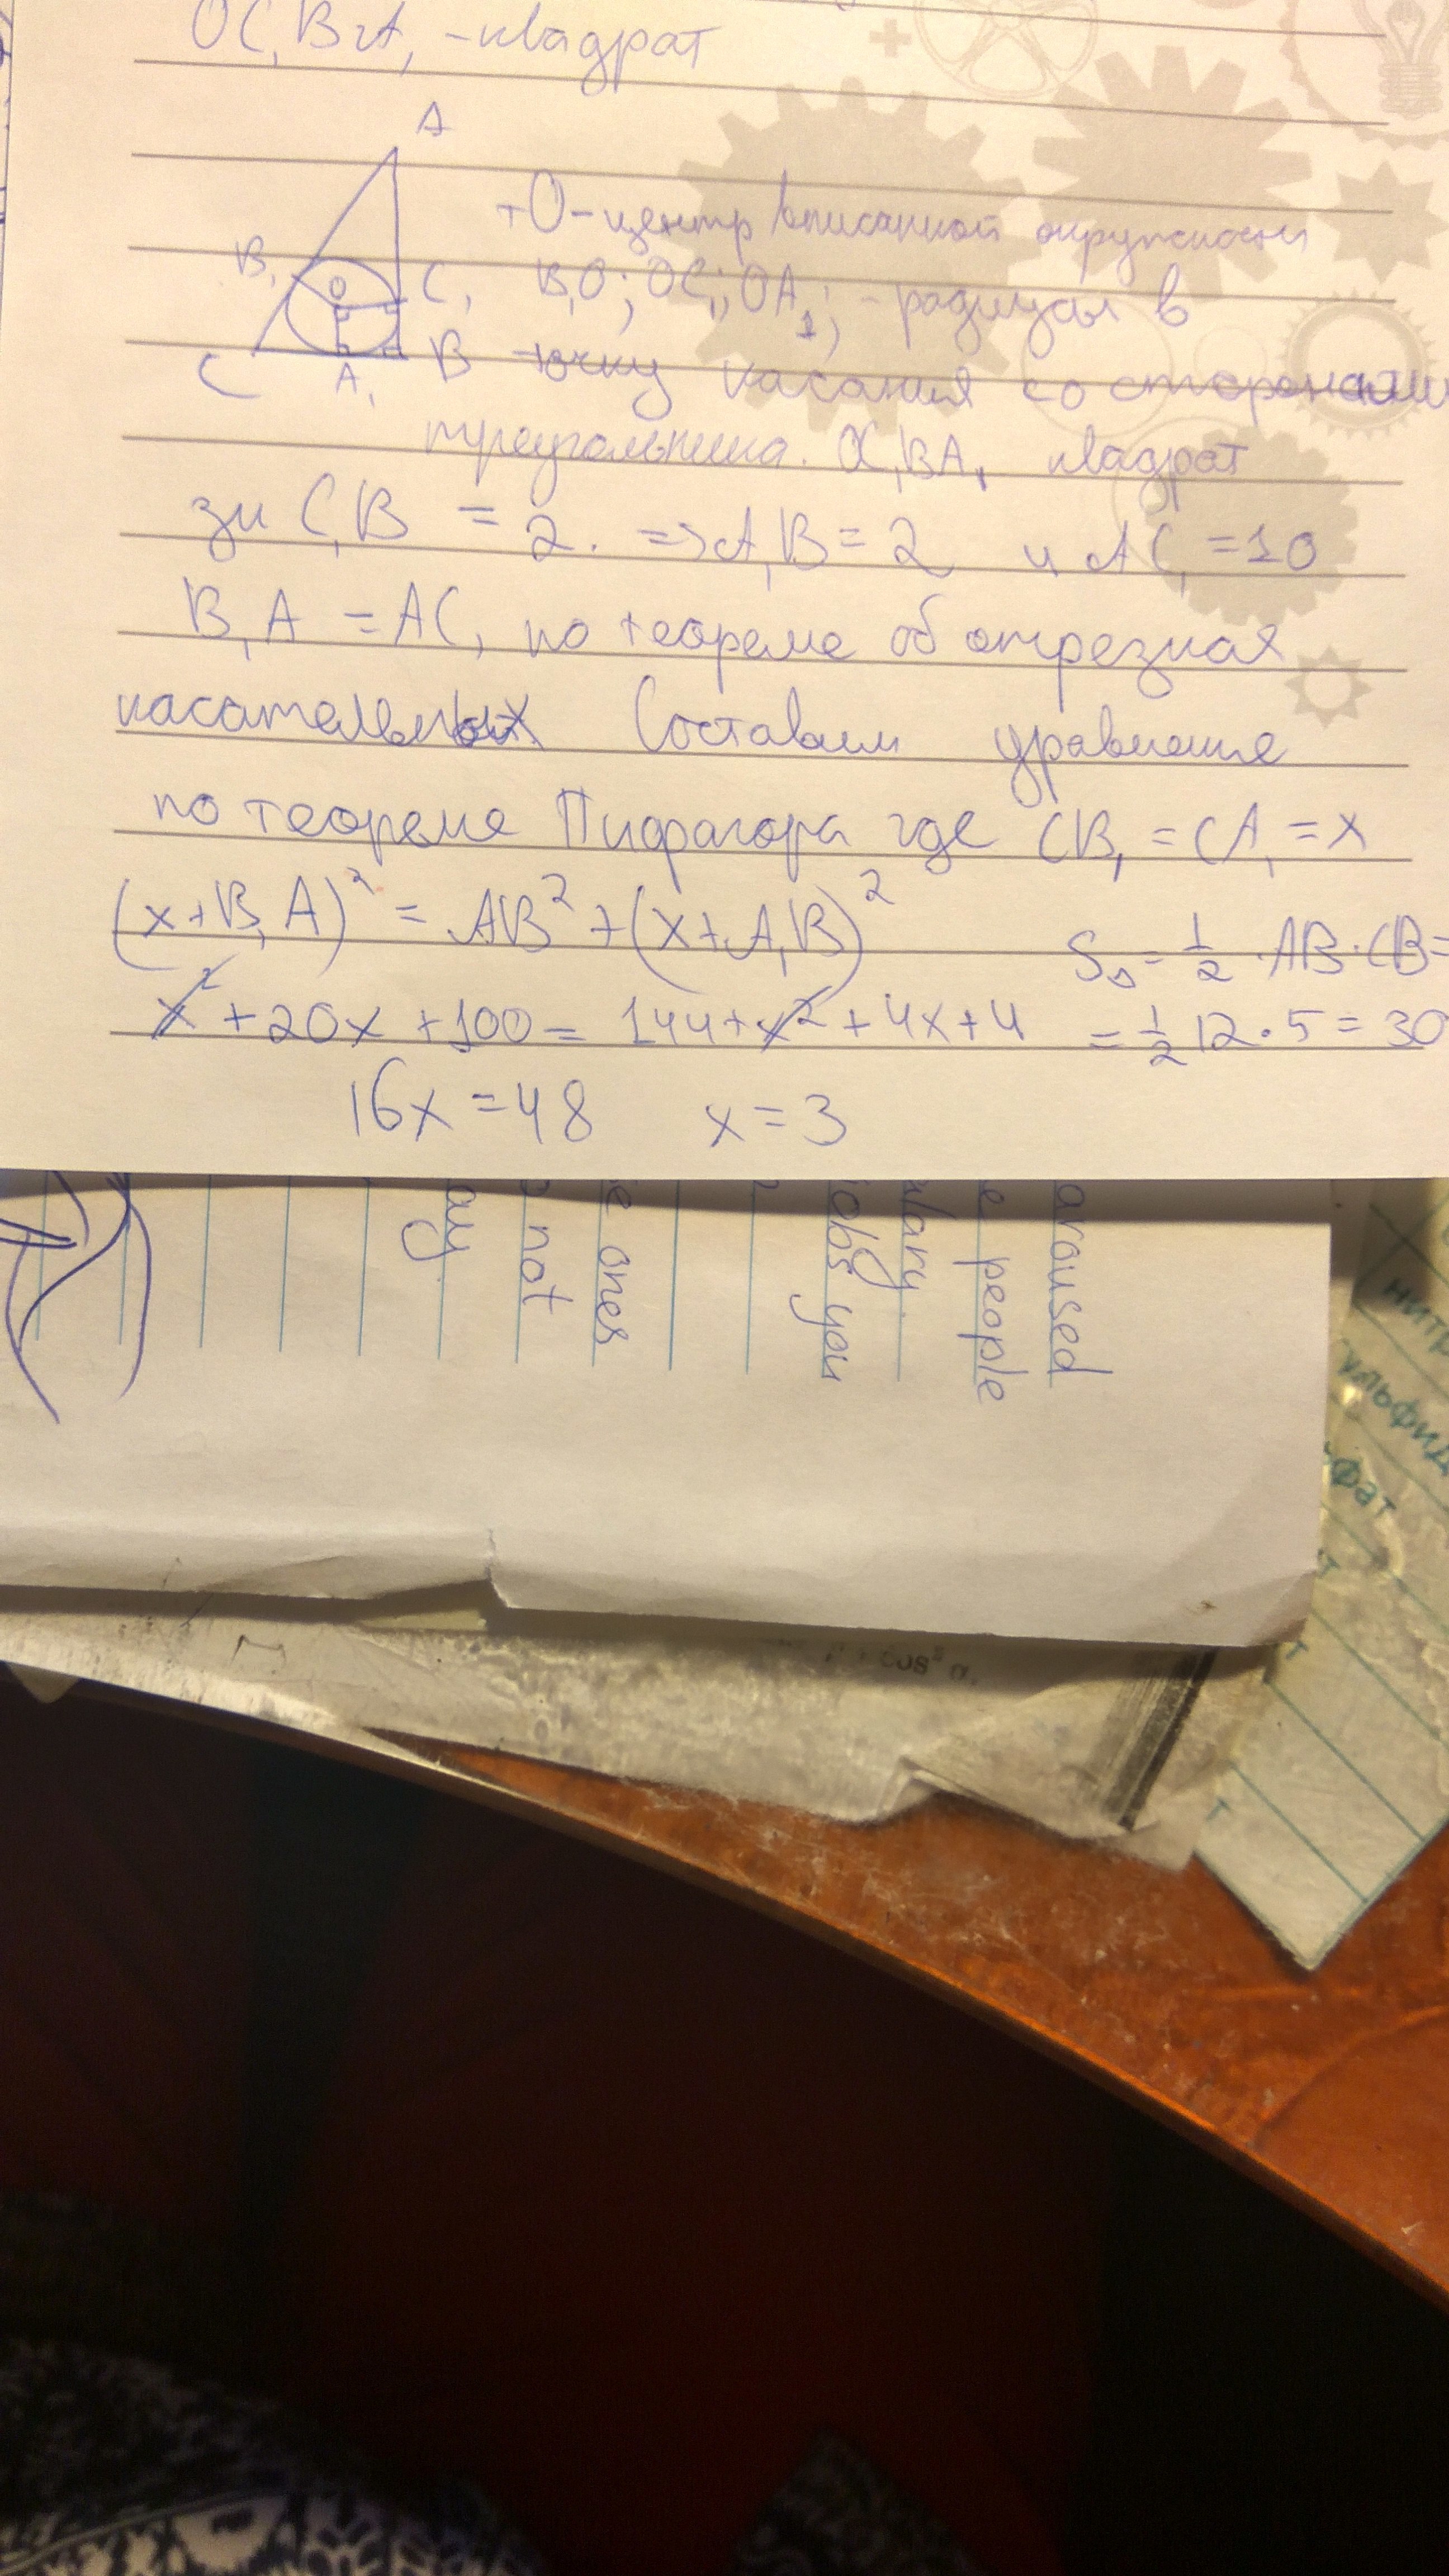 OC₁BA₁ - квадрат
A
т О - центр вписанной окружности
B₁ O C₁ B₁O; OC₁; OA₁; - радиусы в
C A₁ B точку касания со сторонами
треугольника. OC₁BA₁ квадрат
зн C₁B = 2. => A₁B = 2 и AC₁ = 10
B₁A = AC₁ по теореме об отрезках
касательных Составим уравнение
по теореме Пифагора где CB₁ = CA₁ = x
(x+B₁A)² = AB² + (x+A₁B)² S△ = 1/2 · AB · CB =
x² + 20x + 100 = 144 + x² + 4x + 4 = 1/2 12 · 5 = 30
16x = 48 x = 3
aroused
e people
jobs you
e ones
not
ay
нитр
льфид
фат
т
т
т
cos² α.